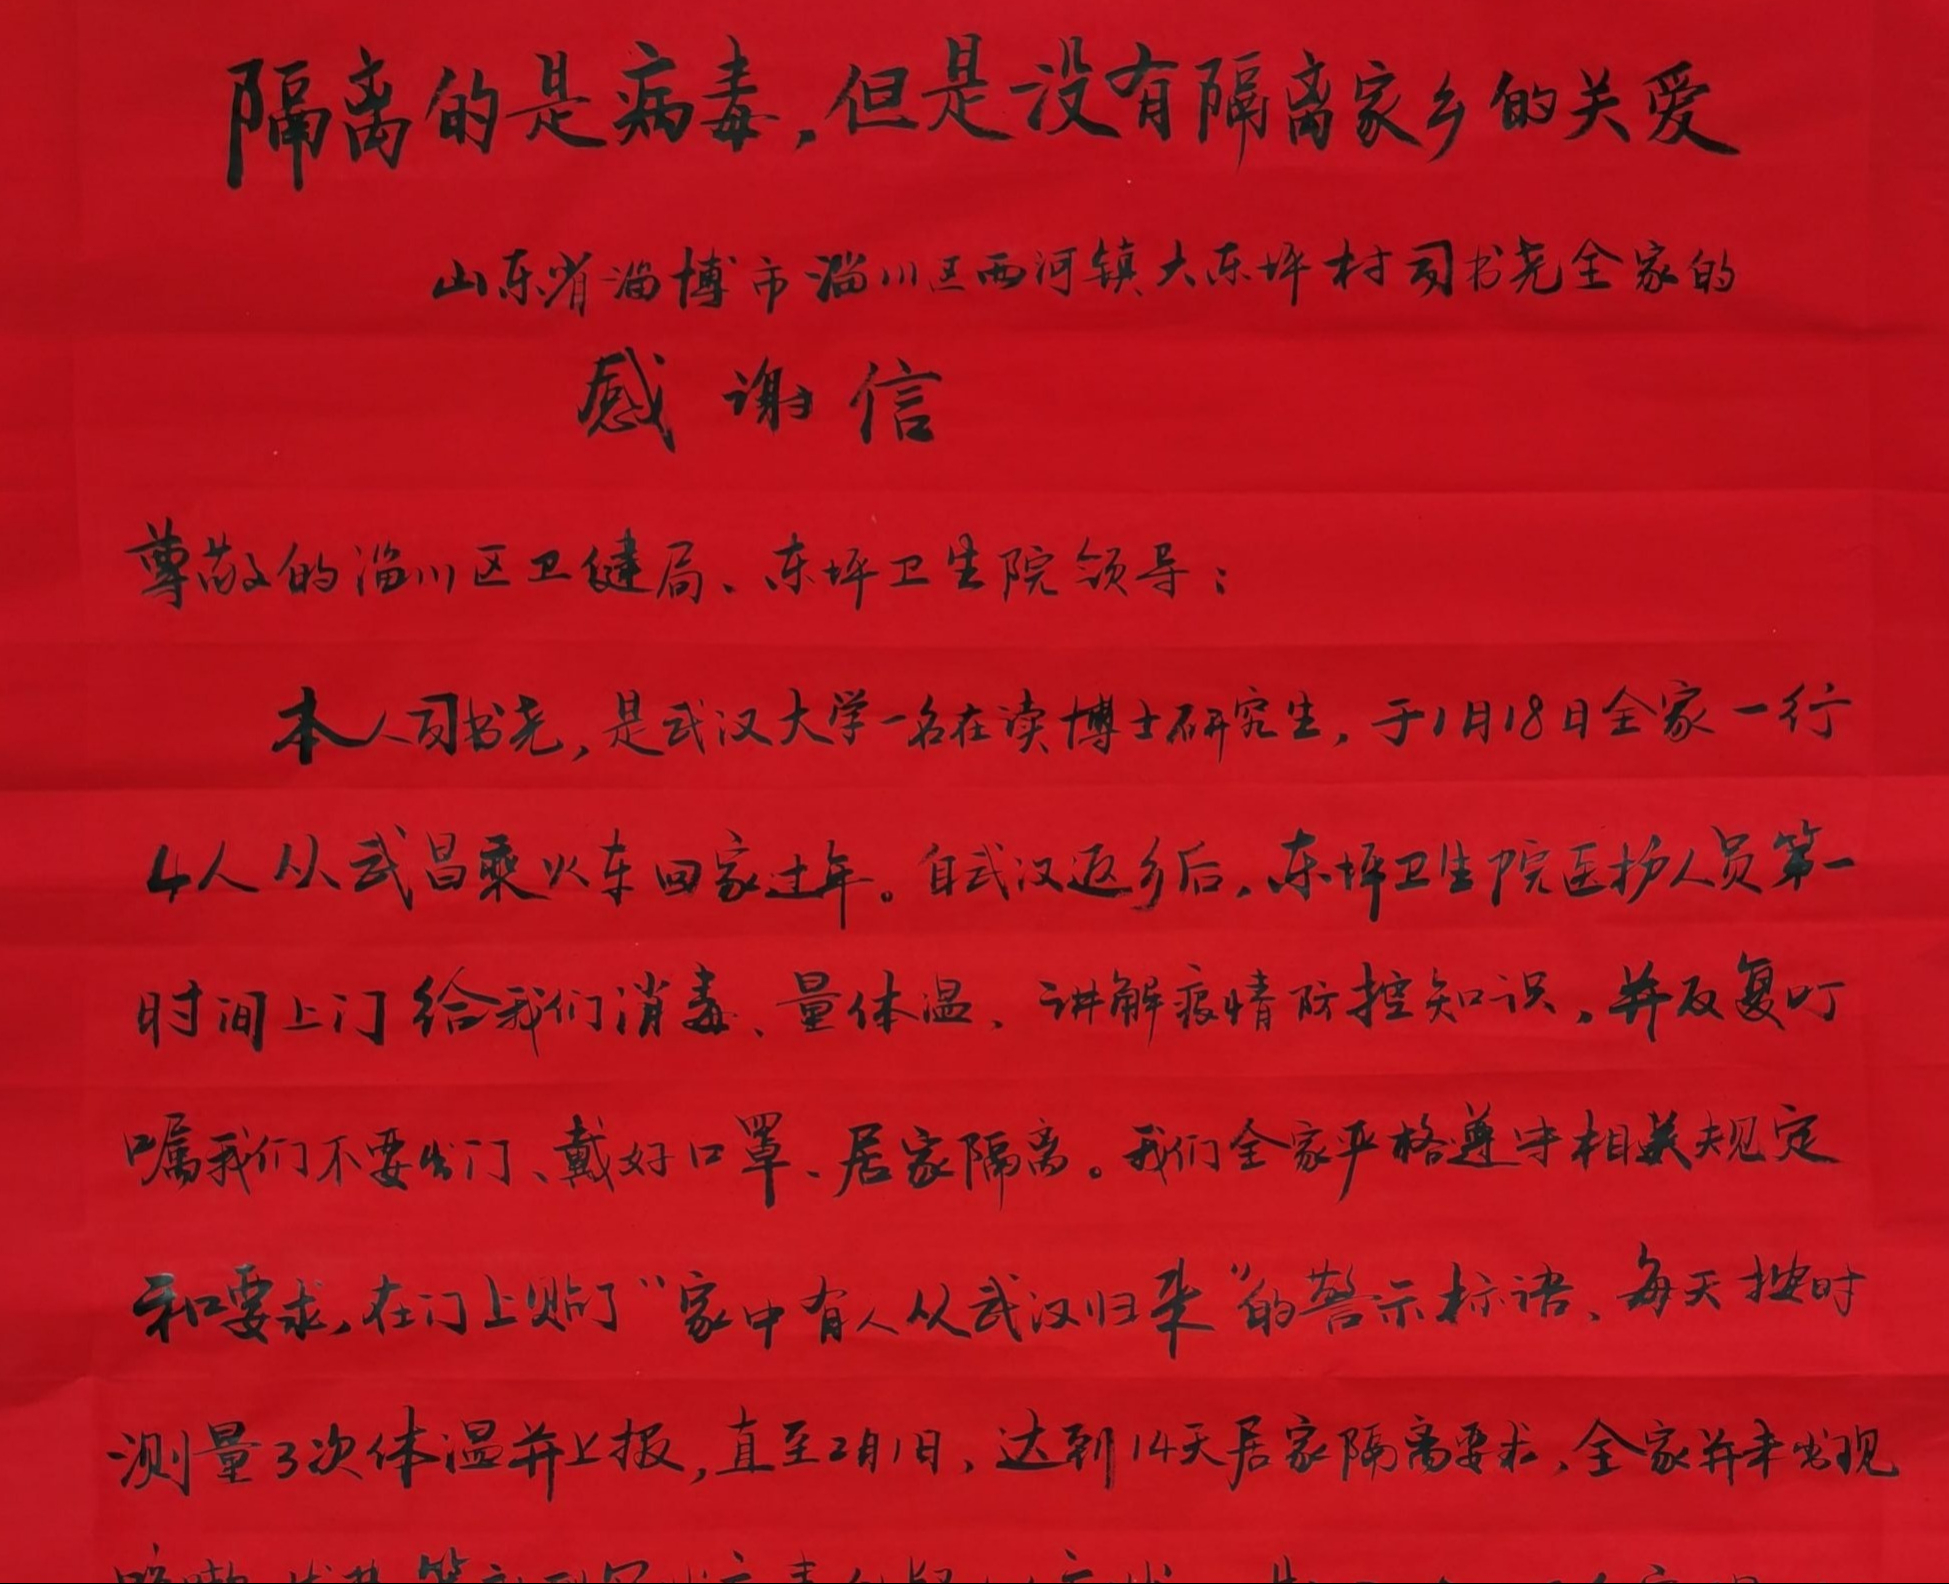 隔离的是病毒,但是没有隔离家乡的关爱
山东省淄博市淄川区西河镇大东坪村司书尧全家的
感谢信
尊敬的淄川区卫健局、东坪卫生院领导:
本人司书尧,是武汉大学一名在读博士研究生,于1月18日全家一行
4人从武昌乘火车回家过年。自武汉返乡后,东坪卫生院医护人员第一
时间上门给我们消毒、量体温、讲解疫情防控知识,并反复叮
嘱我们不要出门、戴好口罩、居家隔离。我们全家严格遵守相关规定
和要求,在门上贴了"家中有人从武汉归来"的警示标语、每天按时
测量3次体温并上报,直至2月1日,达到14天居家隔离要求,全家并未出现